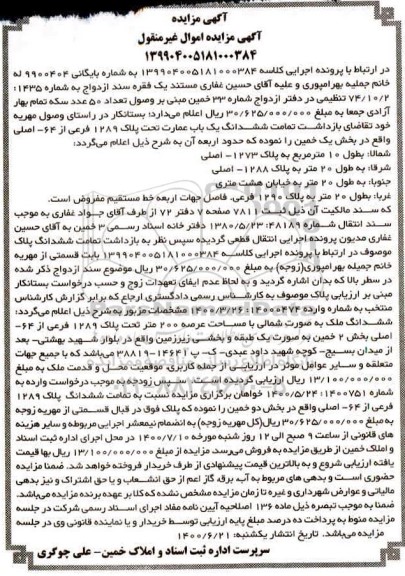 آگهی مزایده
آگهی مزایده اموال غیرمنقول
۱۳۹۹۰۴۰۰۵۱۸۱۰۰۰۳۸۴
در ارتباط با پرونده اجرایی کلاسه ۱۳۹۹۰۴۰۰۵۱۸۱۰۰۰۳۸۴ به شماره بایگانی ۹۹۰۰۴۰۴ له
خانم جمیله بهرامپوری و علیه آقای حسین غفاری مستند یک فقره سند ازدواج به شماره ۱۴۳۵:
۷۴/۱۰/۲ تنظیمی در دفتر ازدواج شماره ۳۳ خمین مبنی بر وصول تعداد ۵۰ عدد سکه تمام بهار
آزادی جمعا به مبلغ ۳۰/۶۲۵/۰۰۰/۰۰۰ ریال اعلام می‌دارد: بستانکار در راستای وصول مهریه
خود تقاضای بازداشت تمامت ششدانگ یک باب عمارت تحت پلاک ۱۲۸۹ فرعی از ۶۴- اصلی
واقع در بخش یک خمین را نموده که حدود اربعه آن به شرح ذیل اعلام می‌گردد:
شمالا: بطول ۱۰ مترمربع به پلاک ۱۲۷۳- اصلی
شرقا: به طول ۲۰ متر به پلاک ۱۲۸۸- اصلی
جنوبا: به طول ۲۰ متر به خیابان هشت متری
غربا: بطول ۲۰ متر به پلاک ۱۲۹۰ فرعی. فاصل جهات اربعه خط مستقیم مفروض است.
که سند مالکیت آن ذیل ثبت ۷۸۱۱ صفحه ۷ دفتر ۷۲ از طرف آقای جواد غفاری به موجب
سند انتقال شماره ۴۸۱۸۹: ۱۳۸۰/۵/۲۳ دفتر خانه اسناد رسمی ۳ خمین به آقای حسین
غفاری مدیون پرونده اجرایی انتقال قطعی گردیده سپس نظر به بازداشت تمامت ششدانگ پلاک
موصوف در ارتباط با پرونده اجرایی کلاسه ۱۳۹۹۰۴۰۰۵۱۸۱۰۰۰۳۸۴ بابت قسمتی از مهریه
خانم جمیله بهرامپوری(زوجه) به مبلغ ۳۰/۶۲۵/۰۰۰/۰۰۰ ریال موضوع سند ازدواج ذکر شده
در سطر بالا که بدان اشاره گردید و به لحاظ عدم ایفای تعهدات زوج و حسب درخواست بستانکار
مبنی بر ارزیابی پلاک موصوف به کارشناس رسمی دادگستری ارجاع که برابر گزارش کارشناس
منتخب به شماره وارده ۱۴۰۰۰۴۷۴: ۱۴۰۰/۳/۲۶ مشخصات مزبور به شرح ذیل اعلام می‌گردد:
ششدانگ ملک به صورت شمالی با مساحت عرصه ۲۰۰ متر تحت پلاک ۱۲۸۹ فرعی از ۶۴-
اصلی بخش ۲ خمین به صورت یک طبقه و بخشی زیرزمین واقع در بلوار شهید بهشتی- بعد
از میدان بسیج- کوچه شهید داود عبدی- ک- پ ۱۴۶۴۱-۳۸۸۱۹ می‌باشد که با جمیع جهات
متعلقه و سایر عوامل موثر در ارزیابی از جمله کاربری، موقعیت محل و قدمت ملک به مبلغ
۱۳/۱۰۰/۰۰۰/۰۰۰ ریال ارزیابی گردیده است. سپس زوجه به موجب درخواست وارده به
شماره ۱۴۰۰۷۵۱: ۱۴۰۰/۵/۲۴ خواهان برگزاری مزایده نسبت به تمامت ششدانگ پلاک ۱۲۸۹
فرعی از ۶۴- اصلی واقع در بخش دو خمین را نموده که پلاک فوق در قبال قسمتی از مهریه زوجه
به مبلغ ۳۰/۶۲۵/۰۰۰/۰۰۰ ریال(کل مهریه زوجه) به انضمام نیم‌عشر اجرایی مربوطه و سایر هزینه
های قانونی از ساعت ۹ صبح الی ۱۲ روز شنبه مورخه ۱۴۰۰/۷/۱۰ در محل اجرای اداره ثبت اسناد
و املاک خمین از طریق مزایده به فروش می‌رسد. مزایده از مبلغ ۱۳/۱۰۰/۰۰۰/۰۰۰ ریال بها قیمت
یافته ارزیابی شروع و به بالاترین قیمت پیشنهادی از طرف خریدار فروخته خواهد شد. ضمنا مزایده
حضوری است و بدهی های مربوط به آب، برق، گاز اعم از حق انشعاب و یا حق اشتراک و نیز بدهی
مالیاتی و عوارض شهرداری و غیره تا زمان مزایده مشخص نشده که کلا بر عهده برنده مزایده می‌باشد.
ضمنا به موجب تبصره ذیل ماده ۱۳۶ اصلاحیه آیین نامه مفاد اجرای اسناد رسمی شرکت در جلسه
مزایده منوط به پرداخت ده درصد مبلغ پایه ارزیابی توسط خریدار و یا نماینده قانونی وی در جلسه
مزایده می‌باشد. تاریخ انتشار یکشنبه: ۱۴۰۰/۶/۲۱
سرپرست اداره ثبت اسناد و املاک خمین- علی چوگری